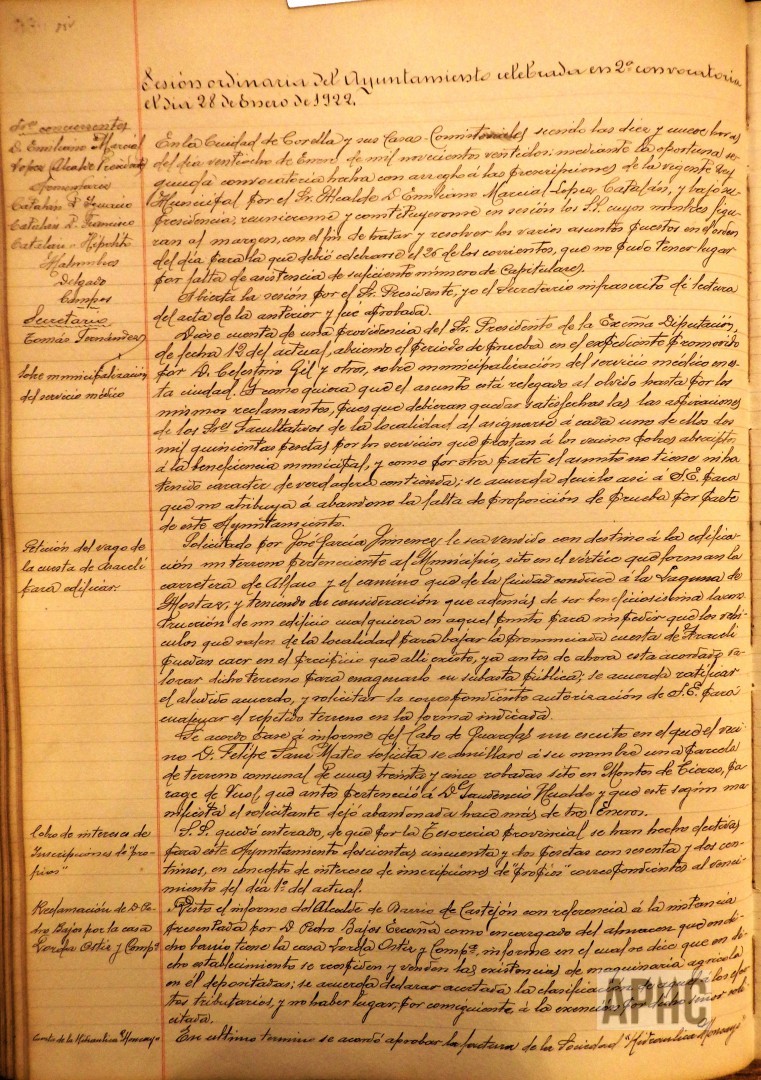 Sesión ordinaria del Ayuntamiento celebrada en 2ª convocatoria
el día 28 de Enero de 1922.
Sres. concurrentes
D. Emiliano Marcial
López Alcalde Presidente
Concejales
Catalán D. Ignacio
Catalán D. Francisco
Catalán D. Hipólito
Malumbres
Delgado
Campos
Secretario
Tomás Fernández
En la Ciudad de Corella y sus Casas-Consistoriales siendo las diez y nueve horas
del día veintiocho de Enero de mil novecientos veintidos: mediante la oportuna se-
gunda convocatoria hecha con arreglo á las prescripciones de la vigente Ley
Municipal por el Sr. Alcalde D. Emiliano Marcial-López Catalán, y bajo su
Presidencia, reunieronse y constituyeronse en sesión los S.S. cuyos nombres figu-
ran al margen, con el fin de tratar y resolver los varios asuntos puestos en el orden
del día para la que debió celebrarse el 26 de los corrientes, que no pudo tener lugar
por falta de asistencia de suficiente número de Capitulares.
Abierta la sesión por el Sr. Presidente, yo el Secretario infrascrito dí lectura
del acta de la anterior y fué aprobada.
Sobre municipalización
del servicio médico
Dióse cuenta de una providencia del Sr. Presidente de la Excma Diputación,
de fecha 12 del actual, abriendo el periodo de prueba en el expediente promovido
por D. Celestino Gil y otros, sobre municipalización del servicio médico en es-
ta ciudad. Y como quiera que el asunto está relegado al olvido hasta por los
mismos reclamantes, pues que debieran quedar satisfechas las las aspiraciones
de los Sres. Facultativos de la localidad al asignarse á cada uno de ellos dos
mil quinientas pesetas por los servicios que prestan á los vecinos pobres adscriptos
á la beneficencia municipal, y como por otra parte el asunto no tiene ni ha
tenido caracter de verdadera contienda; se acuerda decirlo así á S.E. para
que no atribuya á abandono la falta de proposición de prueba por parte
de este Ayuntamiento.
Petición del vago de
la cuesta de Araceli
para edificar.
Solicitado por José García Jimenez le sea vendido con destino á la edifica-
ción un terreno perteneciente al Municipio, sito en el vértice que forman la
carretera de Alfaro y el camino que de la ciudad conduce á la Laguna de
Mostaz, y teniendo en consideración que además de ser beneficiosísima la cons-
trucción de un edificio cualquiera en aquel punto para impedir que los vehí-
culos que salen de la localidad para bajar la pronunciada cuesta de Araceli
puedan caer en el precipicio que allí existe, ya antes de ahora esta acordado va-
lorar dicho terreno para enagenarlo en subasta pública; se acuerda ratificar
el aludido acuerdo, y solicitar la correspondiente autorización de S.E. para
enagenar el repetido terreno en la forma indicada.
Se acordó pase á informe del Cabo de Guardas un escrito en el que el veci-
no D. Felipe Sanz Mateo solicita se amillare á su nombre una parcela
de terreno comunal de unas treinta y cinco robadas sito en Montes de Cierzo, pa-
rage de que antes perteneció á D. Gaudencio Hualde y que este según ma-
nifiesta el solicitante dejó abandonada hace más de tres Eneros.
Cobro de intereses de
Inscripciones de "pro-
pios"
S.S. quedó enterado, de que por la Tesoreria provincial se han hecho efectivas
para este Ayuntamiento doscientas cincuenta y dos pesetas con sesenta y dos cen-
timos, en concepto de intereses de inscripciones de "propios" correspondientes al venci-
miento del día 1º del actual.
Reclamación de D. Pe-
dro Bajos por la casa
Lorda Ostiz y Compª
Visto el informe del Alcalde de Barrio de Castejón con referencia á la instancia
presentada por D. Pedro Bajos como encargado del almacen que en di-
cho barrio tiene la casa Lorda Ostiz y Compª, informe en el cual se dice que en di-
cho establecimiento se reexpiden y venden las existencias de maquinaria agrícola
en él depositadas; se acuerda declarar acertada la clasificación de aquel á los efec-
tos tributarios, y no haber lugar, por consiguiente, á la exención por dicho señor soli-
citada.
Cuenta de la Hidraulica "Moncayo"
En último termino se acordó aprobar la factura de la Sociedad "Hidraulica Moncayo"
APHC